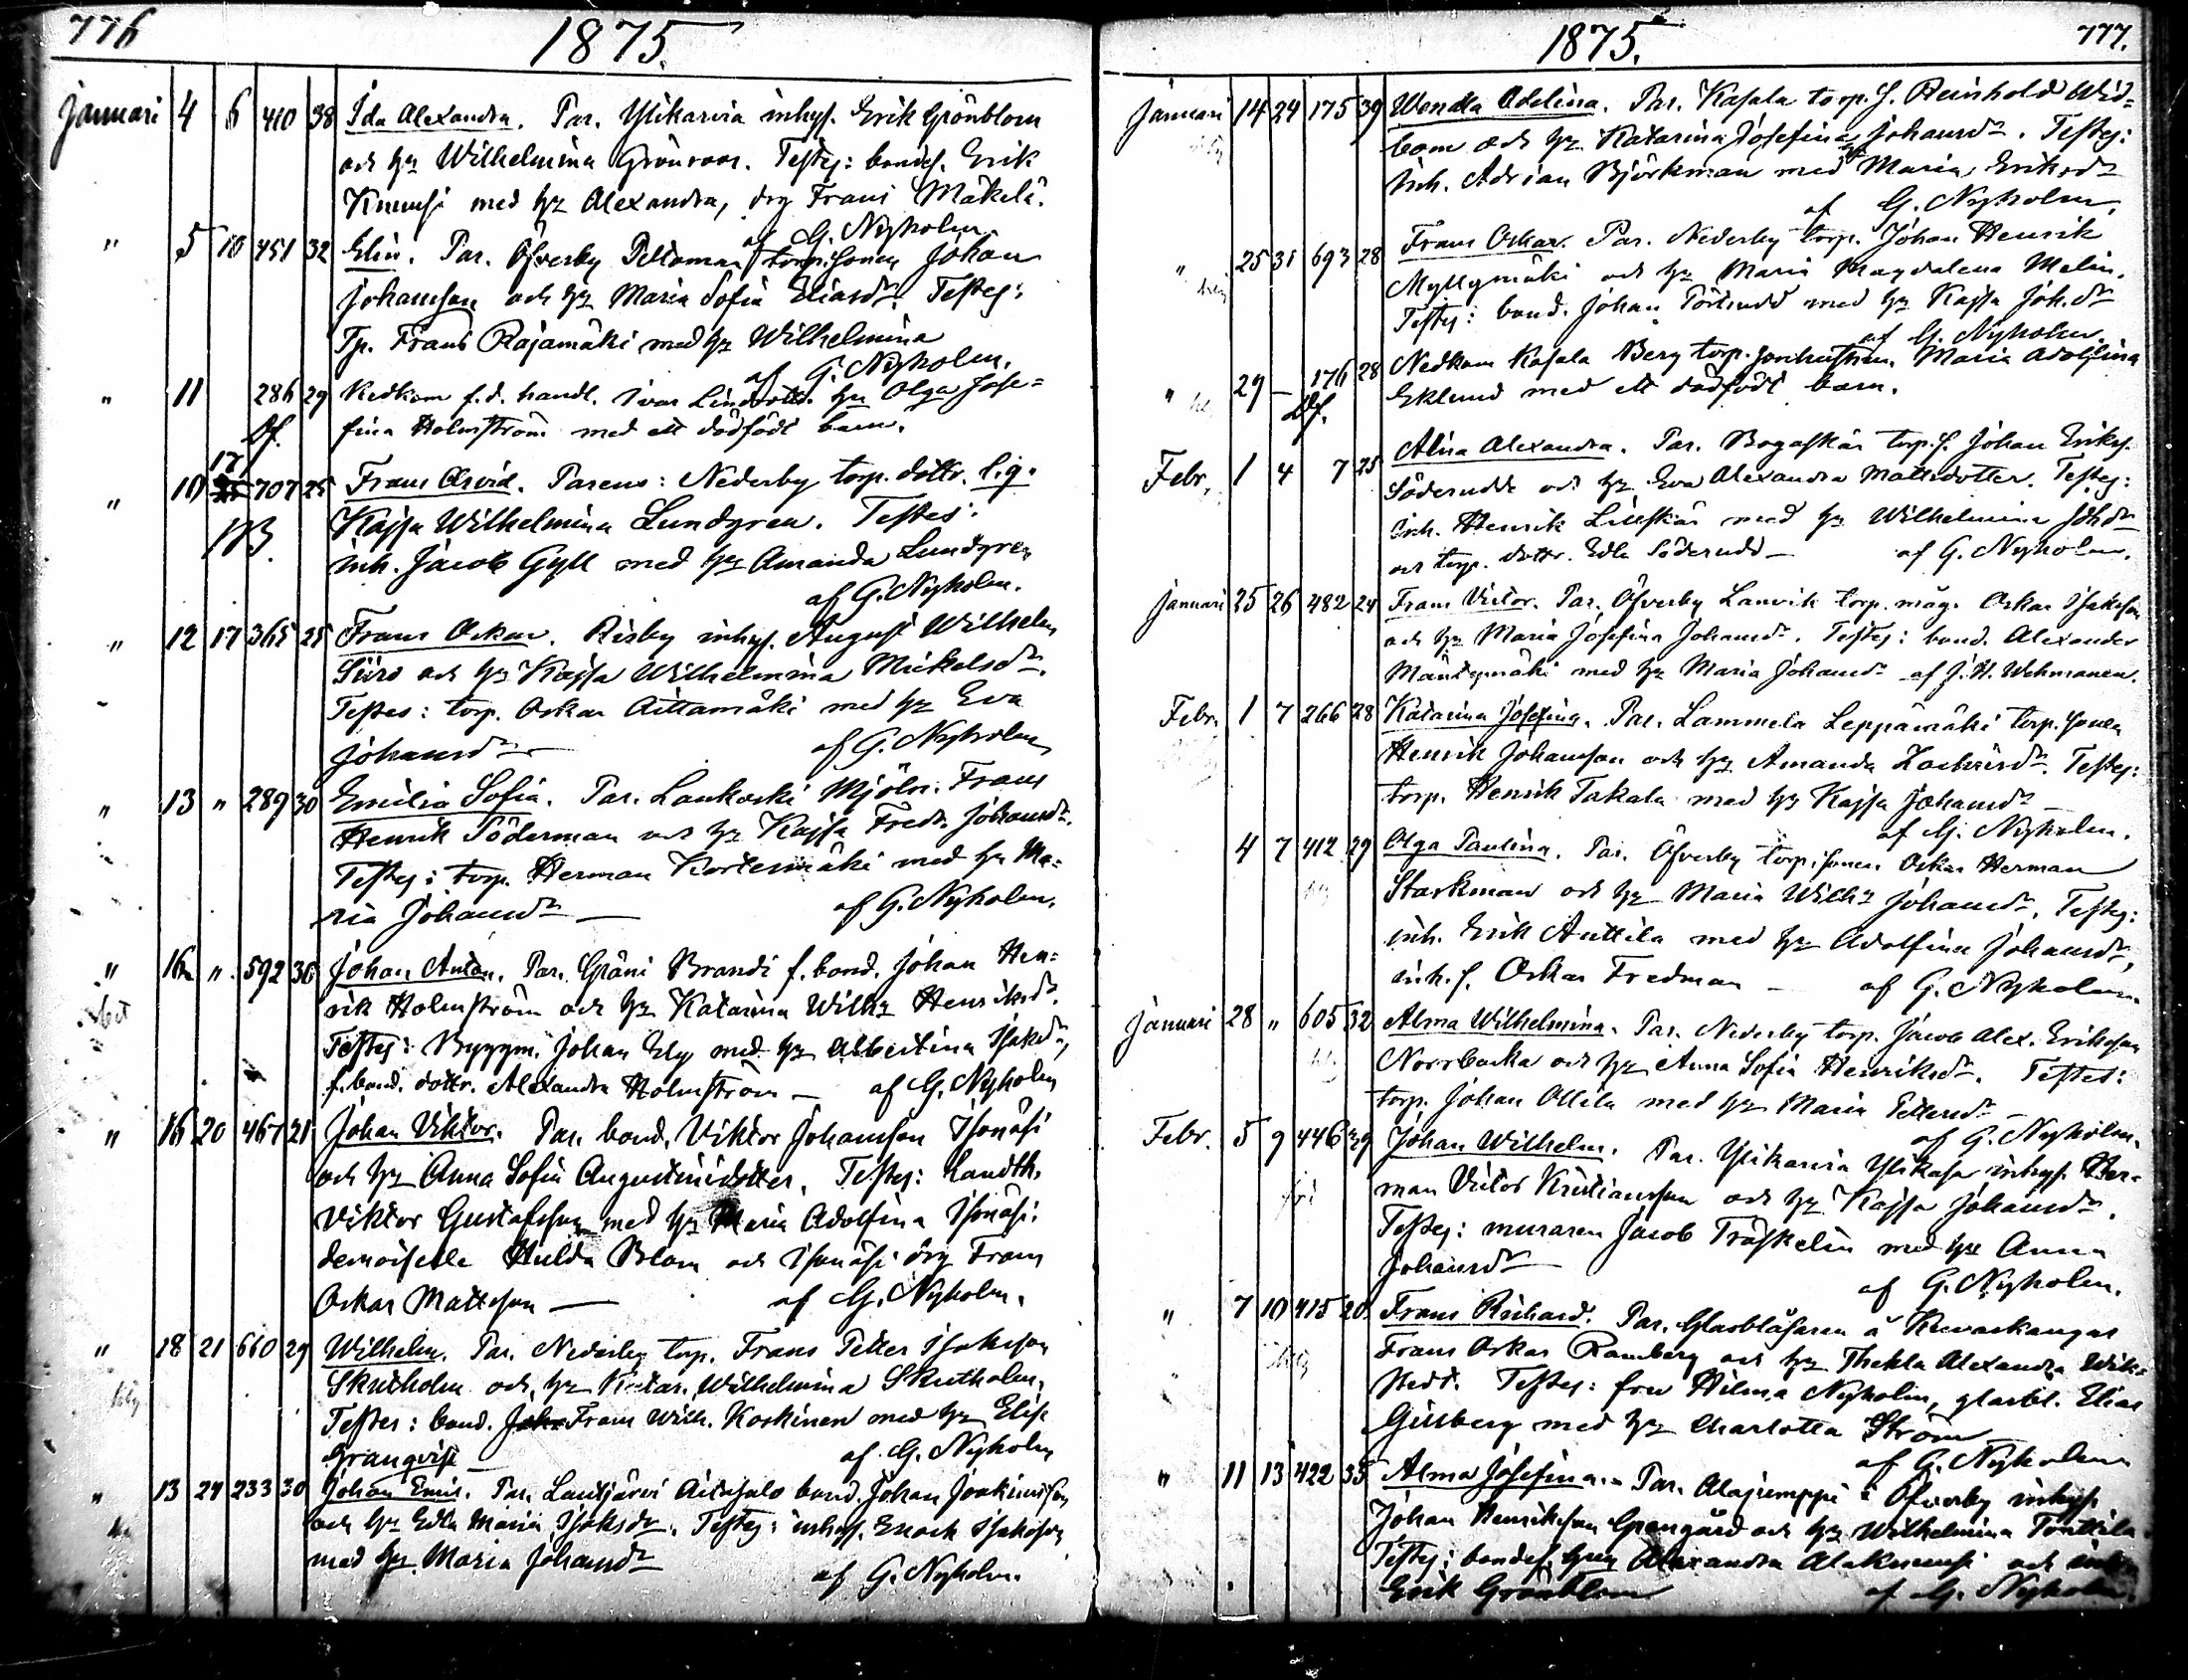 776
1875.
Januari 4 6 410 38 Ida Alexandra. Par. Ylikarvia inhys. Erik Grönblom
och hu Wilhelmina Grönroos. Testes: bondes. Erik
Knuusi med hu Alexandra, drg Frans Mäkelä.
af G. Nyholm.
" 5 10 451 32 Elin. Par. Öfverby Peltomaa torp.sonen Johan
Johansson och hu Maria Sofia Eliasdr. Testes:
Tp. Frans Rajamäki med hu Wilhelmina
af G. Nyholm.
" 11 286 29 Nedkom f.d. handl. Ivar hu Olga Jose=
Df. fina Holmström med ett dödfödt barn.
" 10 17 707 25 Frans Arvid. Parens: Nederby torp. dottr. lig.
Kajsa Wilhelmina Lundgren. Testes:
inh. Jacob Gyll med hu Amanda Lundgren
af G. Nyholm.
" 12 17 365 25 Frans Oskar. Risby inhys. August Wilhelm
Siiro och hu Kajsa Wilhelmina Mickelsdr.
Testes: torp. Oskar Aittamäki med hu Eva
Johansdr — af G. Nyholm
" 13 " 289 30 Emilia Sofia. Par. Lankoski Mjöln. Frans
Henrik Söderman och hu Kajsa Fredr. Johansdr.
Testes: torp. Herman Kortesmäki med hu Ma=
ria Johansdr — af G. Nyholm.
" 16 " 592 36 Johan Anton. Par. Gräni Brandi f. bond. Johan Hen=
rik Holmström och hu Katarina Wilha Henriksdr.
Testes: Byggm. Johan Elg med hu Albertina Isaksdr,
f. bond. dottr. Alexandra Holmström — af G. Nyholm
" 16 20 467 21 Johan Viktor. Par. bond. Viktor Johansson Isonäsi
och hu Anna Sofia Augustinidotter. Testes: Landth.
Viktor Gustafsson med hu Maria Adolfina Isonäsi:
demoiselle Hulda Blom och Isonäsi drg Frans
Oskar Mattsson — af G. Nyholm.
" 18 21 660 29 Wilhelm. Par. Nederby torp. Frans Petter Isaksson
Skutholm och hu Katar. Wilhelmina Skutholm.
Testes: bond. Frans Wilh. Koskinen med hu Elis
Granqvist — af G. Nyholm
" 13 24 233 30 Johan Emil. Par. Lautjärvi Aitasalo bond. Johan Joakimsson
och hu Edla Maria Isaksdr. Testes: inhys. Enoch Isaksson
med hu Maria Johansdr af G. Nyholm.
1875.
777.
Januari 14 24 175 39 Wendla Adelina. Par. Kasala torp.s. Reinhold Wid=
bom och hu Katarina Josefina Johansdr. Testes:
inh. Adrian Björkman med hu Maria Eriksdr
af G. Nyholm.
" 25 31 693 28 Frans Oskar. Par. Nederby torp. Johan Henrik
Myllymäki och hu Maria Magdalena Malin.
Testes: bond. Johan Törnudd med hu Kajsa Joh.dr
af G. Nyholm.
" 29 — 176 28 Nedkom Kasala Berg torp. Maria Adolfina
Df. Eklund med ett dödfödt barn.
Febr. 1 4 7 25 Alina Alexandra. Par. Bogaskär torp.s. Johan Eriks.
Söderudde och hu Eva Alexandra Mattsdotter. Testes:
inh. Henrik Lillskär med hu Wilhelmina Johdr
och torp. dottr. Edla Söderudd — af G. Nyholm.
Januari 25 26 482 24 Frans Victor. Par. Öfverby Lanvik torp. måg. Oskar Isaksson
och hu Maria Josefina Johansdr. Testes: bond. Alexander
Mäntymäki med hu Maria Johansdr af J. H. Wehmanen.
Febr. 1 7 266 28 Katarina Josefina. Par. Lammela Leppämäki torp. sonen
Henrik Johansson och hu Amanda Zachrisdr. Testes:
torp. Henrik Takala med hu Kajsa Johansdr —
af G. Nyholm.
4 7 412 29 Olga Paulina. Par. Öfverby torp.sonen. Oskar Herman
Starkman och hu Maria Wilha Johansdr. Testes:
inh. Erik Anttila med hu Adolfina Johansdr,
inh.s. Oskar Fredman — af G. Nyholm.
Januari 28 " 605 32 Alma Wilhelmina. Par. Nederby torp. Jacob Alex. Eriksson
Norrbacka och hu Anna Sofia Henriksdr. Testes:
torp. Johan Ollila med hu Maria Pettersdr —
af G. Nyholm.
Febr. 5 9 446 39 Johan Wilhelm. Par. Ylikarvia Ylikasa inhys. Her=
man Victor Kristiansson och hu Kajsa Johansdr.
Testes: muraren Jacob Träskelin med hu Anna
Johansdr —
af G. Nyholm.
" 7 10 415 20 Frans Richard. Par. Glasblåsaren å Revaskangas
Frans Oskar Ramberg och hu Thekla Alexandra Wik=
stedt. Testes: fru Hilma Nyholm, glasbl. Elias
Gillberg med hu Charlotta Ström —
af G. Nyholm
" 11 13 422 35 Alma Josefina. Par. Alajumppi i Öfverby inhys.
Johan Henriksson Grengård och hu Wilhelmina Tonttila.
Testes: bondes. hu Alexandra Alaknuusi och inh.
Erik Grönblom af G. Nyholm.